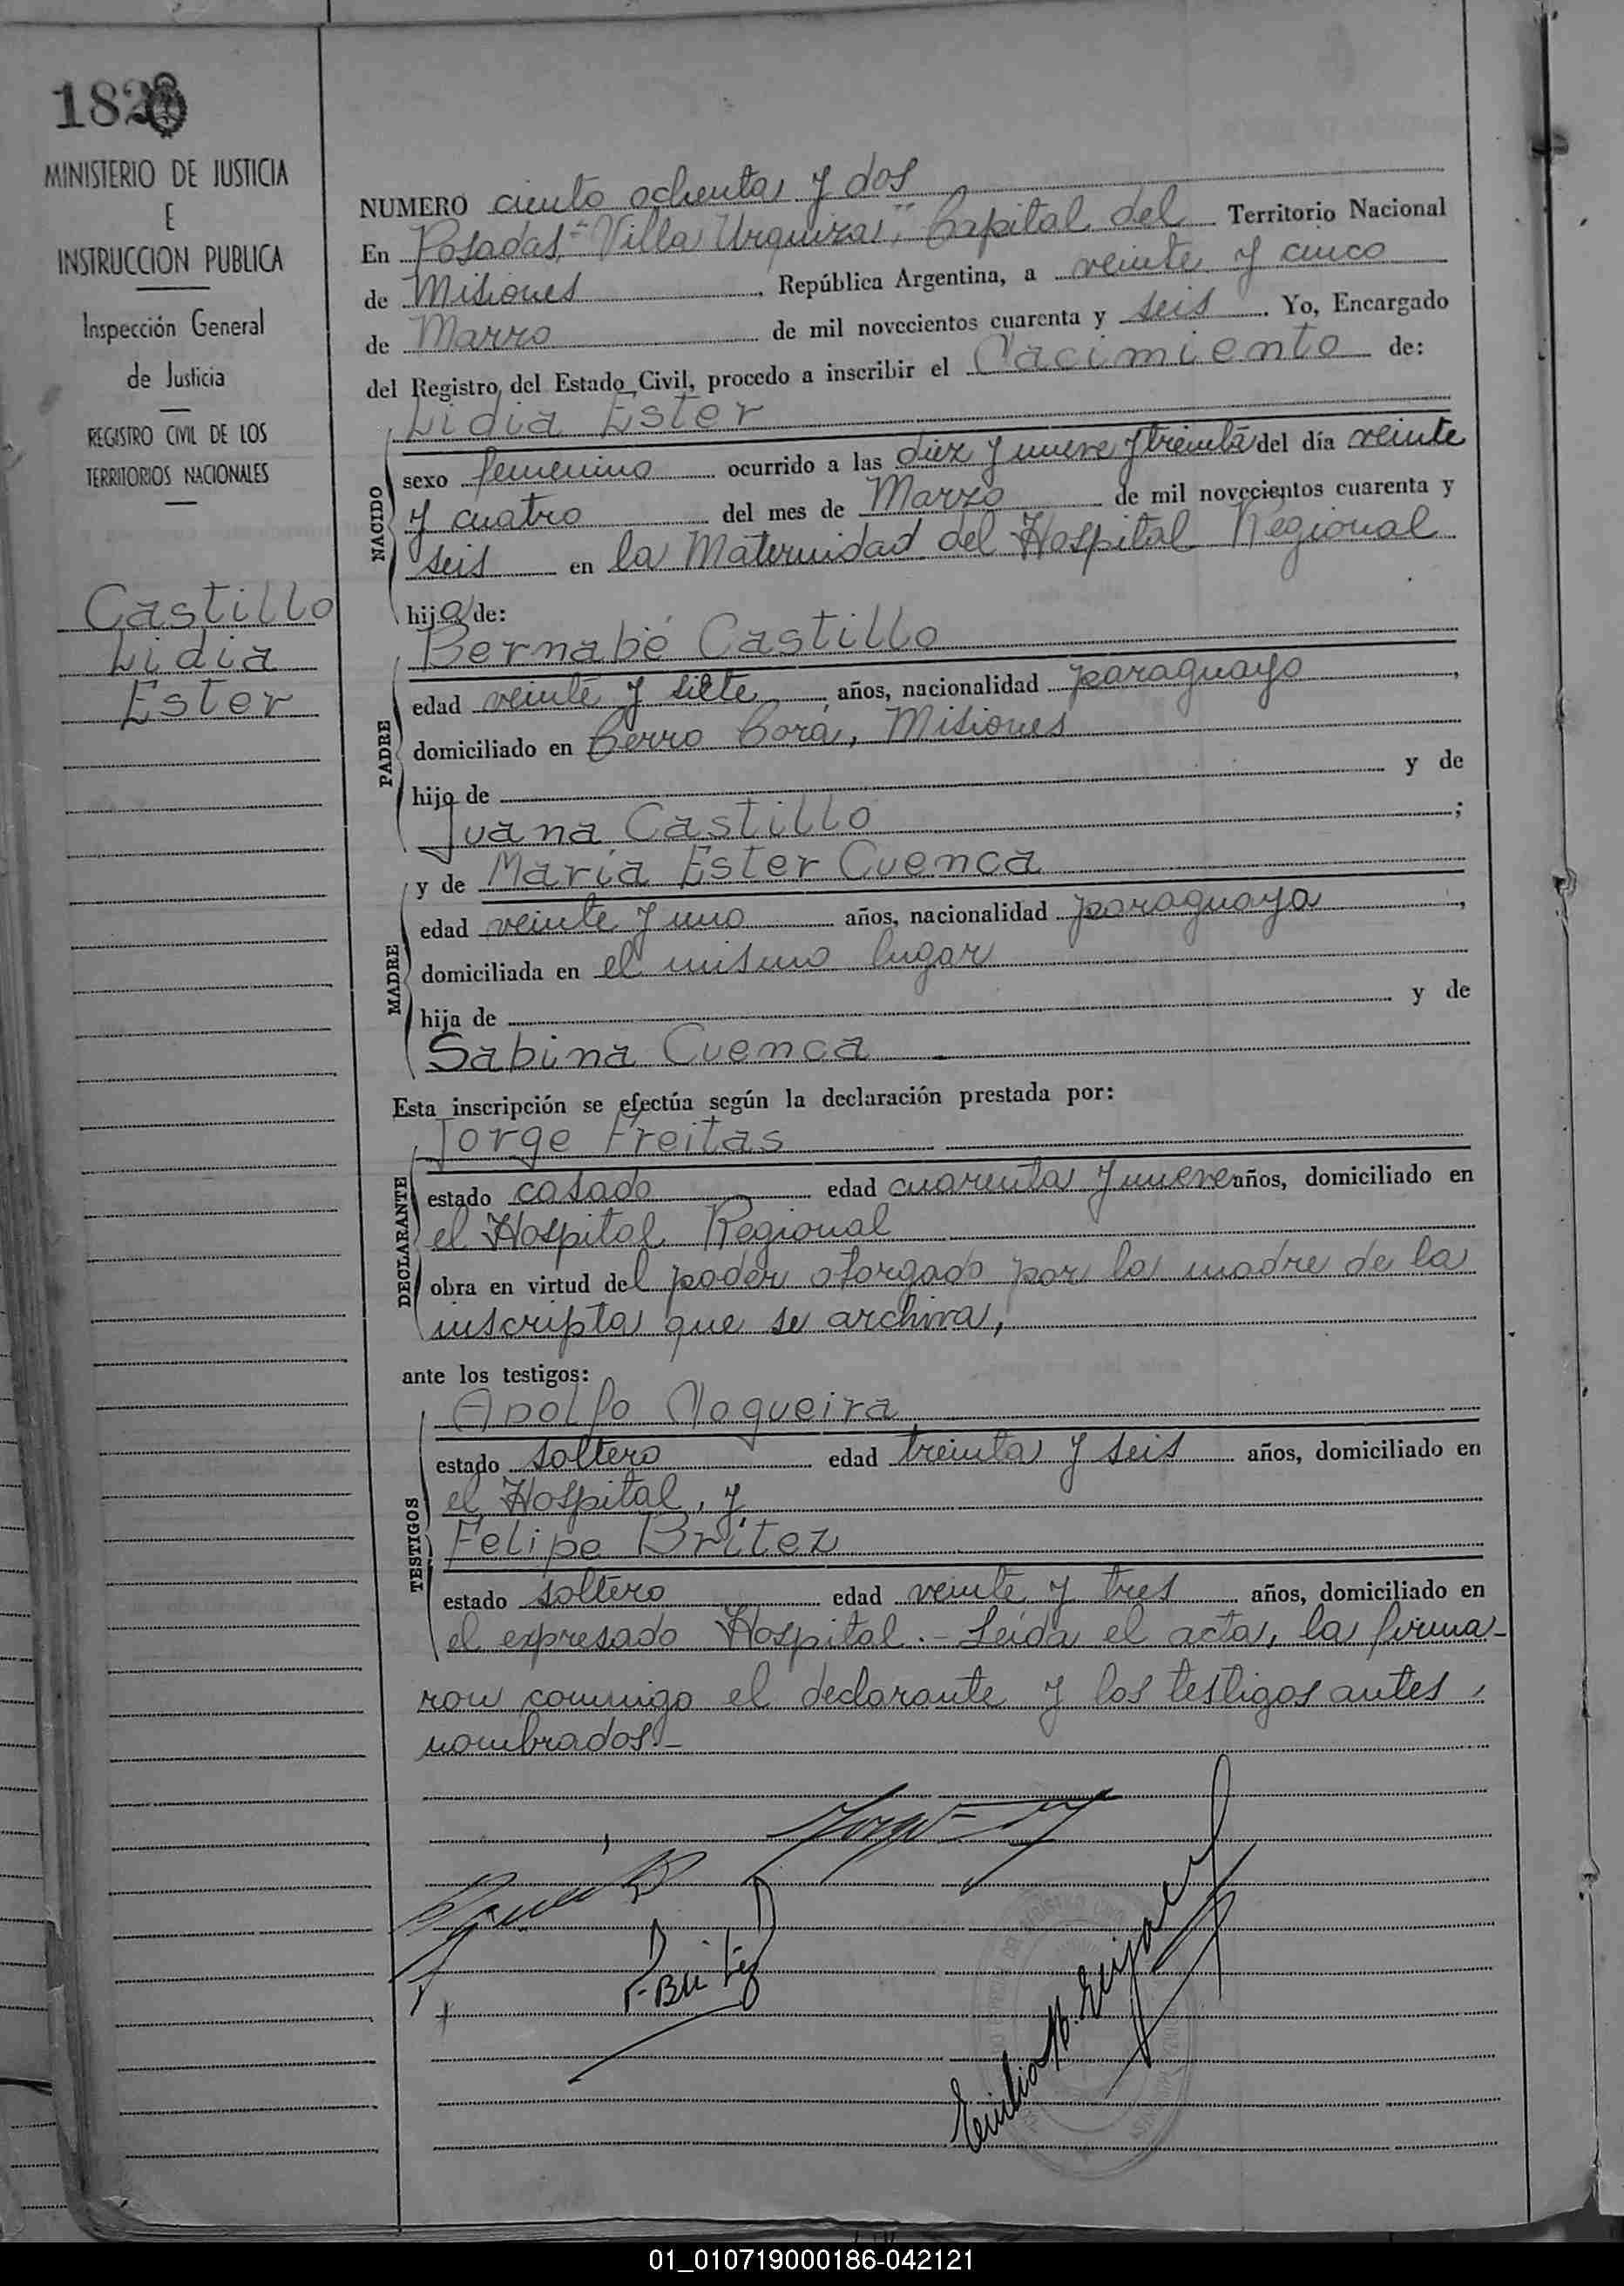 182
MINISTERIO DE JUSTICIA
E
INSTRUCCION PUBLICA
Inspección General
de Justicia
REGISTRO CIVIL DE LOS
TERRITORIOS NACIONALES
Castillo
Lidia
Ester
NUMERO ciento ochenta y dos
En Posadas, "Villa Urquiza", Capital del Territorio Nacional
de Misiones, República Argentina, a veinte y cinco
de Marzo de mil novecientos cuarenta y seis. Yo, Encargado
del Registro del Estado Civil, procedo a inscribir el Nacimiento de:
Lidia Ester
NACIDO
sexo femenino ocurrido a las diez y nueve y treinta del día veinte
y cuatro del mes de Marzo de mil novecientos cuarenta y
seis en la Maternidad del Hospital Regional
hija de:
Bernabé Castillo
PADRE
edad veinte y siete años, nacionalidad paraguayo,
domiciliado en Cerro Corá, Misiones
hijo de y de
Juana Castillo;
y de María Ester Cuenca
MADRE
edad veinte y uno años, nacionalidad paraguaya,
domiciliada en el mismo lugar
hija de y de
Sabina Cuenca
Esta inscripción se efectúa según la declaración prestada por:
Jorge Freitas
DECLARANTE
estado casado edad cuarenta y nueve años, domiciliado en
el Hospital Regional
obra en virtud del poder otorgado por la madre de la
inscripta que se archiva,
ante los testigos:
Adolfo Nogueira
TESTIGOS
estado soltero edad treinta y seis años, domiciliado en
el Hospital, y
Felipe Britez
estado soltero edad veinte y tres años, domiciliado en
el expresado Hospital.- Leída el acta, la firma-
ron conmigo el declarante y los testigos antes
nombrados.-
F. Britez
01_010719000186-042121